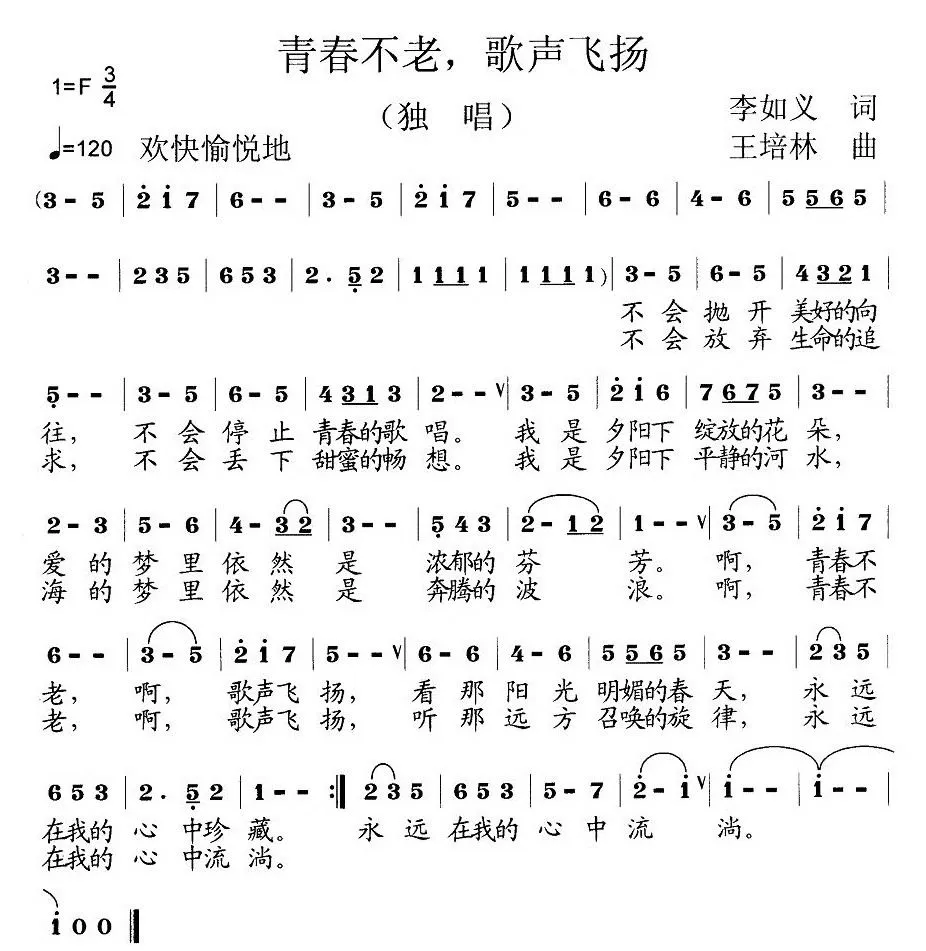 青春不老，歌声飞扬
1=F 3/4
（独 唱）
李如义 词
♩=120 欢快愉悦地
王培林 曲
(3 - 5 | 2̇ 1̇ 7 | 6 - - | 3 - 5 | 2̇ 1̇ 7 | 5 - - | 6 - 6 | 4 - 6 | 5 5̲6̲ 5 |
3 - - | 2 3 5 | 6 5 3 | 2 . 5̣̲ 2 | 1 1̲1̲ 1 | 1 1̲1̲ 1) | 3 - 5 | 6 - 5 | 4 3̲2̲ 1 |
不 会 抛 开 美好的向
不 会 放 弃 生命的追
5̣ - - | 3 - 5 | 6 - 5 | 4 3̲1̲ 3 | 2 - - ∨ | 3 - 5 | 2̇ 1̇ 6 | 7 6̲7̲ 5 | 3 - - |
往， 不 会 停 止 青春的歌 唱。 我 是 夕阳下 绽放的花 朵，
求， 不 会 丢 下 甜蜜的畅 想。 我 是 夕阳下 平静的河 水，
2 - 3 | 5 - 6 | 4 - 3̲2̲ | 3 - - | 5̣ 4 3 | 2 - 1̲2̲ | 1 - - ∨ | 3 - 5 | 2̇ 1̇ 7 |
爱 的 梦 里 依 然 是 浓郁的 芬 芳。 啊， 青春不
海 的 梦 里 依 然 是 奔腾的 波 浪。 啊， 青春不
6 - - | 3 - 5 | 2̇ 1̇ 7 | 5 - - ∨ | 6 - 6 | 4 - 6 | 5 5̲6̲ 5 | 3 - - | 2 3 5 |
老， 啊， 歌声飞 扬， 看 那 阳 光 明媚的春 天， 永 远
老， 啊， 歌声飞 扬， 听 那 远 方 召唤的旋 律， 永 远
6 5 3 | 2 . 5̣̲ 2 | 1 - - :‖ 2 3 5 | 6 5 3 | 5 - 7 | 2̇ - 1̇ ∨ | 1̇ - - | 1̇ - - |
在我的 心 中珍 藏。 永 远 在我的 心 中 流 淌。
在我的 心 中流 淌。
1̇ 0 0 ‖